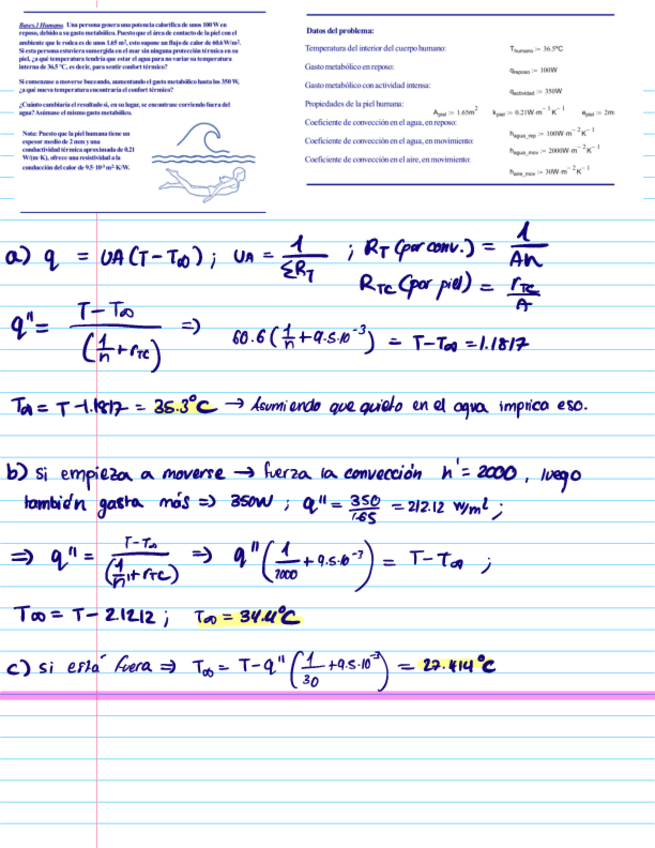 Bases.3 Humano. Una persona genera una potencia calorífica de unos 100 W en
reposo, debido a su gasto metabólico. Puesto que el área de contacto de la piel con el
ambiente que le rodea es de unos 1.65 m², esto supone un flujo de calor de 60.6 W/m².
Si esta persona estuviera sumergida en el mar sin ninguna protección térmica en su
piel, ¿a qué temperatura tendría que estar el agua para no variar su temperatura
interna de 36.5 °C, es decir, para sentir confort térmico?
Si comenzase a moverse buceando, aumentando el gasto metabólico hasta los 350 W,
¿a qué nueva temperatura encontraría el confort térmico?
¿Cuánto cambiaría el resultado si, en su lugar, se encontrase corriendo fuera del
agua? Asúmase el mismo gasto metabólico.
Nota: Puesto que la piel humana tiene un
espesor medio de 2 mm y una
conductividad térmica aproximada de 0.21
W/(m·K), ofrece una resistividad a la
conducción del calor de 9.5·10⁻³ m²·K/W.
Datos del problema:
Temperatura del interior del cuerpo humano: T_humano := 36.5°C
Gasto metabólico en reposo: q_reposo := 100W
Gasto metabólico con actividad intensa: q_actividad := 350W
Propiedades de la piel humana: A_piel := 1.65m² k_piel := 0.21W·m⁻¹K⁻¹ e_piel := 2m
Coeficiente de convección en el agua, en reposo: h_agua_rep := 100W·m⁻²K⁻¹
Coeficiente de convección en el agua, en movimiento: h_agua_mov := 2000W·m⁻²K⁻¹
Coeficiente de convección en el aire, en movimiento: h_aire_mov := 30W·m⁻²K⁻¹
a) q = UA(T-T∞); UA = 1/ΣR_T ; R_T (por conv.) = 1/Ah
R_TC (por piel) = r_TC/A
q'' = T-T∞/(1/h + r_TC) => 60.6(1/h + 9.5·10⁻³) = T-T∞ = 1.1817
T∞ = T-1.1817 = 35.3°C → Asumiendo que quieto en el agua implica eso.
b) si empieza a moverse → fuerza la convección h' = 2000, luego
también gasta más => 350W ; q'' = 350/1.65 = 212.12 W/m² ;
=> q'' = T-T∞/(1/h' + r_TC) => q''(1/2000 + 9.5·10⁻³) = T-T∞ ;
T∞ = T-2.1212 ; T∞ = 34.4°C
c) si está fuera => T∞ = T-q''(1/30 + 9.5·10⁻³) = 27.414°C